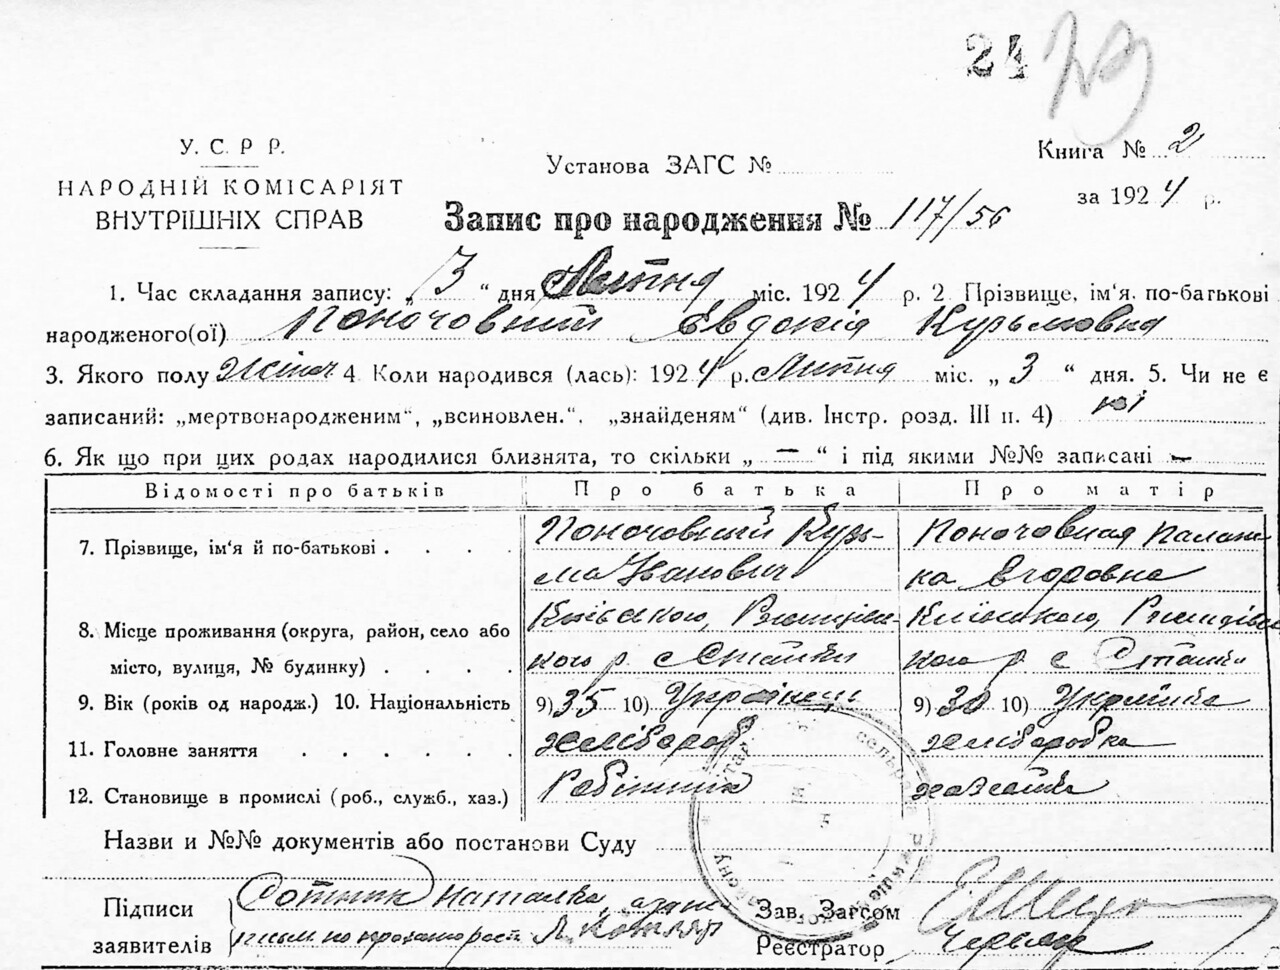 24 79
У. С. Р Р.
НАРОДНІЙ КОМІСАРІЯТ
ВНУТРІШНІХ СПРАВ
Установа ЗАГС №
Книга № 2
за 1924 р.
Запис про народження № 117/56
1. Час складання запису: „ 3 “ дня Липня міс. 1924 р. 2. Прізвище, ім'я, по-батькові
народженого(ої) Поночовний Євдокія Кузьмовна
3. Якого полу жіноч 4 Коли народився (лась): 1924 р. Липня міс. „ 3 “ дня. 5. Чи не є
записаний: „мертвонародженим“, „всиновлен.“, „знайденям“ (див. Інстр. розд. III п. 4) ні
6. Як що при цих родах народилися близнята, то скільки „ — “ і під якими №№ записані —
Відомості про батьків Про батька Про матір
7. Прізвище, ім'я й по-батькові . . . . Поночовний Кузь-
ма Іванович
Поночовная Палаш-
ка Єгоровна
8. Місце проживання (округа, район, село або
місто, вулиця, № будинку) . . . .
Київського, Ржищівсь-
кого р. с Стайки
Київського, Ржищівсь
кого р с Стайки
9. Вік (років од народж.) 10. Національність 9) 35 10) Українець 9) 30 10) Українка
11. Головне заняття . . . . . . хлібороб хліборобка
12. Становище в промислі (роб., служб., хаз.) Робітник хазяйка
Назви и №№ документів або постанови Суду
Підписи
заявителів
Сотник Наталка,
Зав. Загсом
Реєстратор